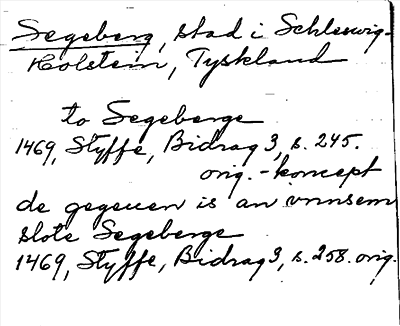 Segeberg, stad i Schleswig-
Holstein, Tyskland
to Segeberge
1469, Styffe, Bidrag 3, s. 245.
orig. - koncept
de gegeuen is an vnnsem
slote Segeberge
1469, Styffe, Bidrag 3, s. 258. orig.